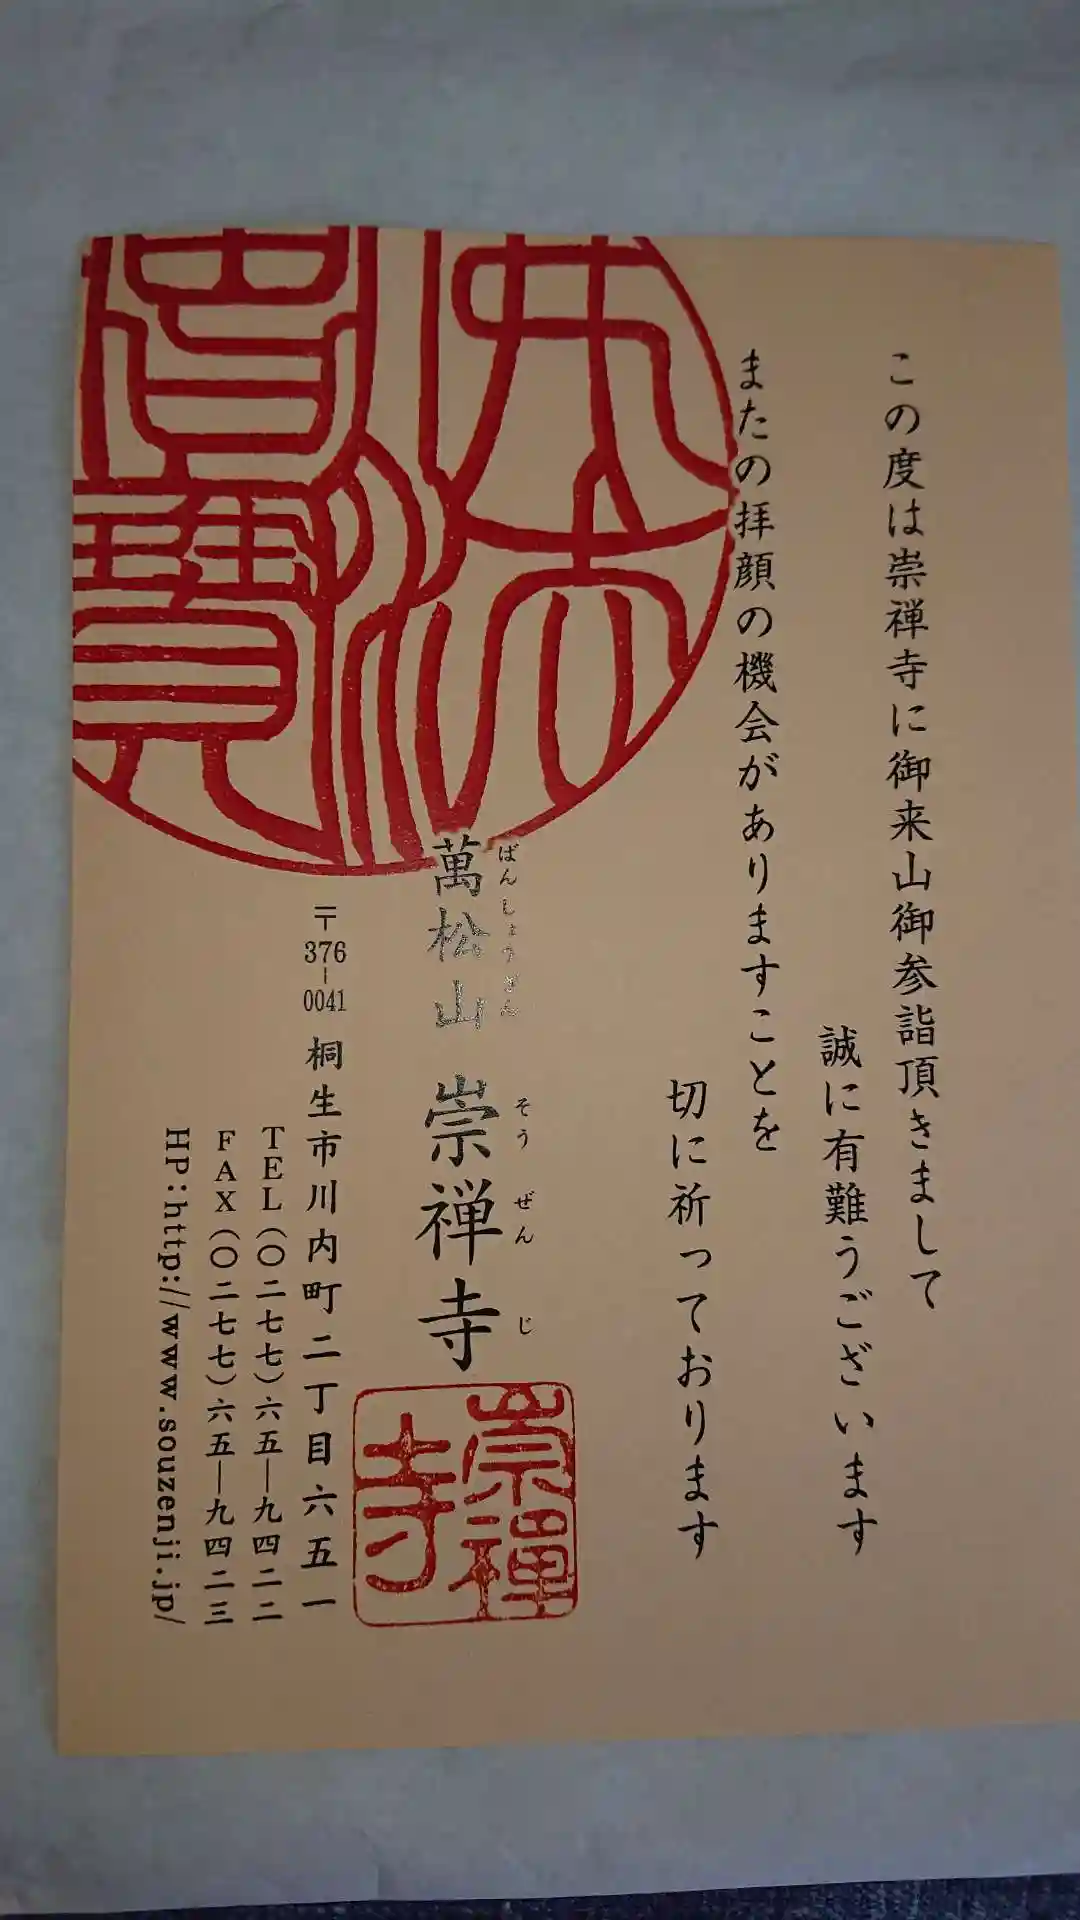 この度は崇禅寺に御来山御参詣頂きまして
誠に有難うございます
またの拝顔の機会がありますことを
切に祈っております
ばんしょうざん そうぜんじ
萬松山 崇禅寺
崇禅寺
〒376-0041 桐生市川内町二丁目六五一
TEL(〇二七七)六五―九四二二
FAX(〇二七七)六五―九四二三
HP:http://www.souzenji.jp/